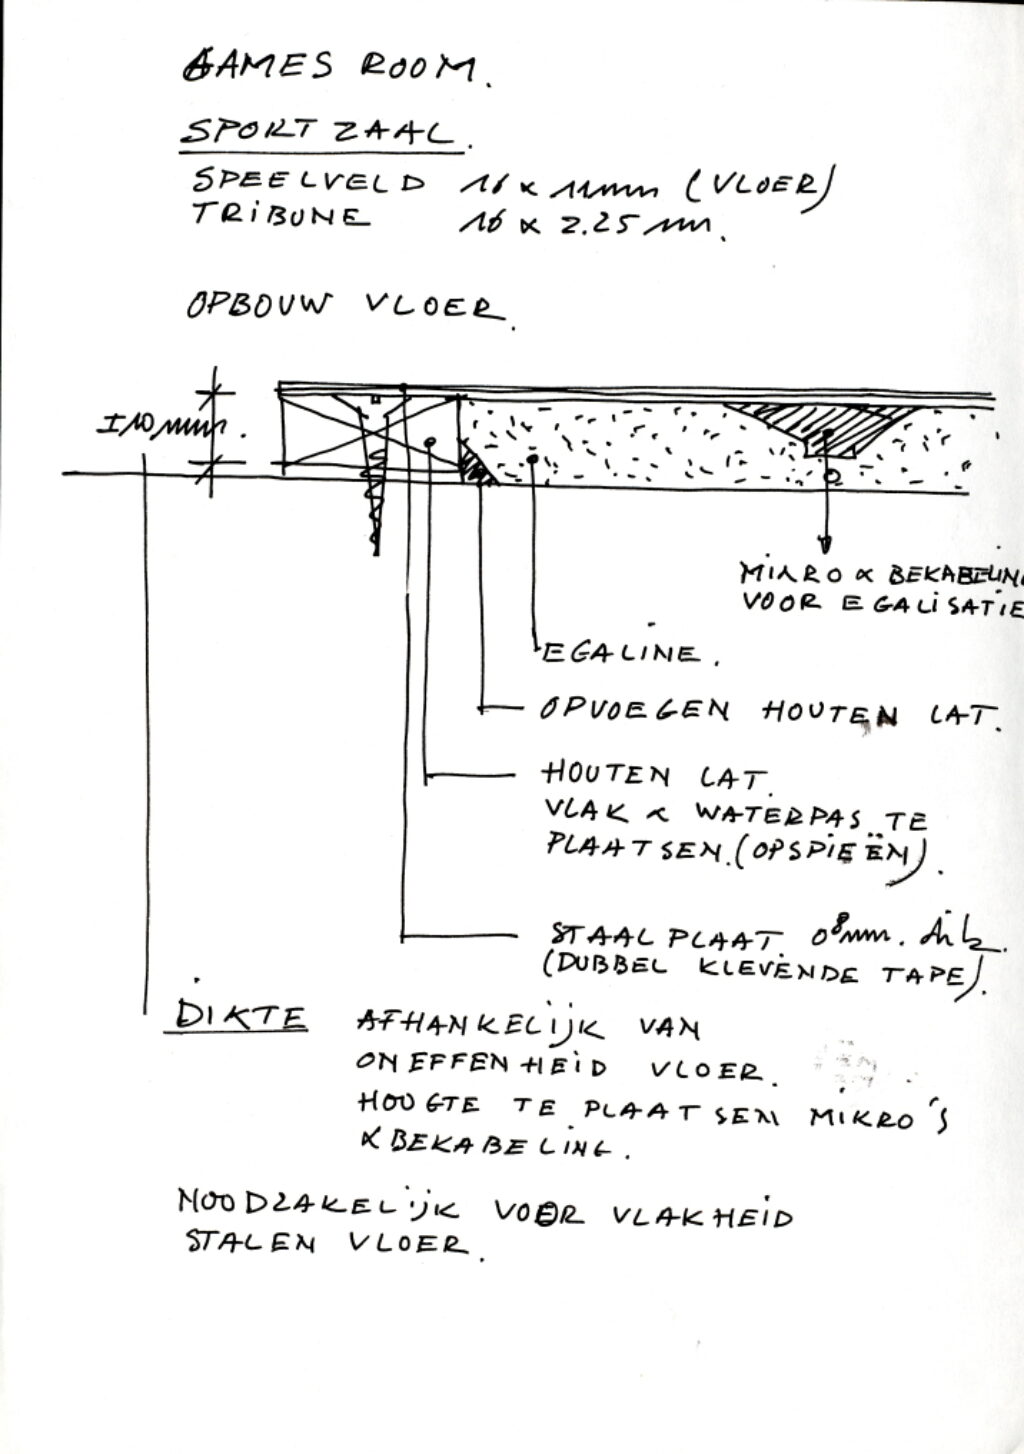 GAMES ROOM.
SPORTZAAL.
SPEELVELD 16 x 11 mm (VLOER)
TRIBUNE 16 x 2.25 mm.
OPBOUW VLOER.
±10 mm.
MIKRO & BEKABELING
VOOR EGALISATIE
EGALINE.
OPVOEGEN HOUTEN LAT.
HOUTEN LAT.
VLAK & WATERPAS TE
PLAATSEN. (OPSPIEËN).
STAALPLAAT 08mm. dik.
(DUBBEL KLEVENDE TAPE).
DIKTE AFHANKELIJK VAN
ONEFFENHEID VLOER.
HOOGTE TE PLAATSEN MIKRO'S
& BEKABELING.
NOODZAKELIJK VOOR VLAKHEID
STALEN VLOER.